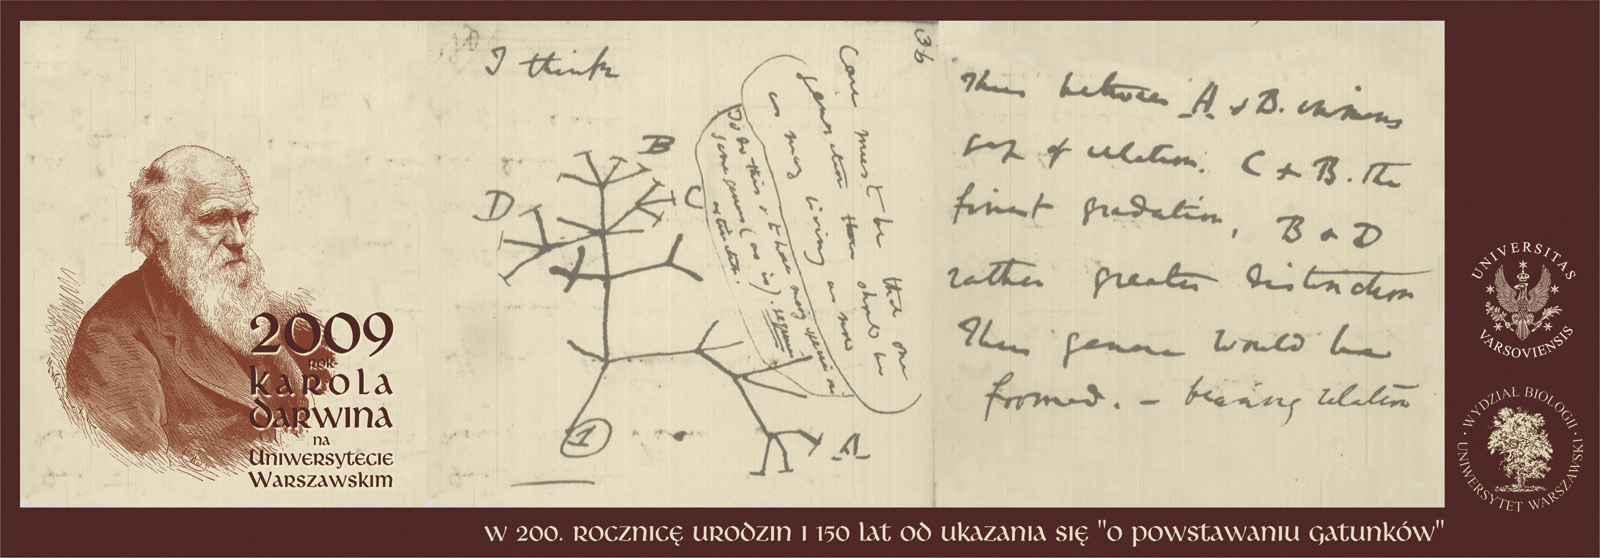 2009
rok
Karola
Darwina
na
Uniwersytecie
Warszawskim
I think
36
Case must be that one
generation then should be
as many living as now
To do this & to have many species in
same genus (as is). requires
extinction.
B
C
D
A
1
Thus between A & B. immens
gap of relation. C & B. the
finest gradation, B & D
rather greater distinction
Thus genera would be
formed. – bearing relation
W 200. rocznicę urodzin i 150 lat od ukazania się "O powstawaniu gatunków"
UNIVERSITAS
VARSOVIENSIS
· WYDZIAŁ BIOLOGII ·
UNIWERSYTET WARSZAWSKI